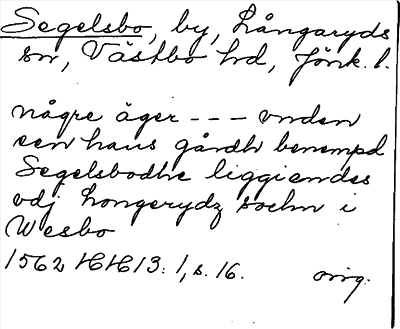 Segelsbo, by, Långaryds
sn, Västbo hd, Jönk. l.
någre äger - - - vnden
een hans gårdh benempd
Segelsbodhe liggiendes
vdj Longerydz sochn i
Wesbo
1562 HH 13: 1, s. 16. orig.